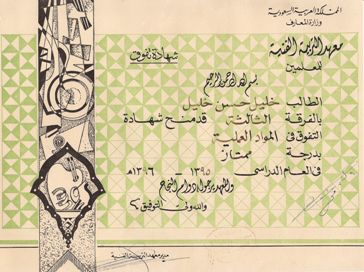 المملكة العربية السعودية
وزارة المعارف
معهد التربية الفنية
للمعلمين
شهادة تفوق
بسم الله الرحمن الرحيم
الطالب خليل حسن خليل
بالفرقة الثالثة قد منح شهادة
التفوق في المواد العملية
بدرجة ممتاز
في العام الدراسي ١٣٩٥ ١٣٩٦هـ
دوام النجاح
والله ولي التوفيق
مدير معهد التربية الفنية